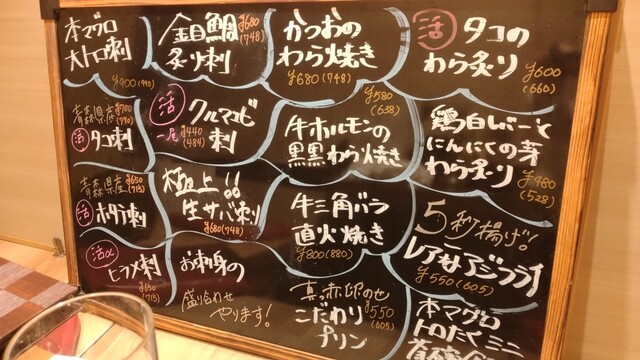 本マグロ
大トロ刺
¥900(990)
金目鯛
炙り刺
¥680
(748)
かつおの
わら焼き
¥680(748)
活
タコの
わら炙り
¥600
(660)
青森県産
¥700
(770)
活
タコ刺
活
クルマエビ
刺
一尾
¥440
(484)
¥580
(638)
牛ホルモンの
黒黒わら焼き
鶏白レバーと
にんにくの芽
わら炙り
¥480
(528)
青森県産
¥650
(715)
活
ホタテ刺
極上!!
生サバ刺
¥680(748)
牛三角バラ
直火焼き
¥800(880)
5秒揚げ!
レアアジフライ
¥550(605)
活〆
ヒラメ刺
¥650
(715)
お刺身の
盛り合わせ
やります!
真っ赤卵のせ
こだわり
プリン
¥550
(605)
本マグロ
トロたくミニ